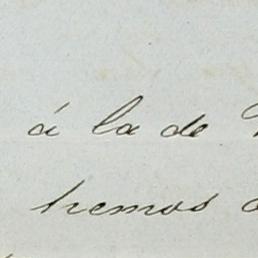 á la de
hemos